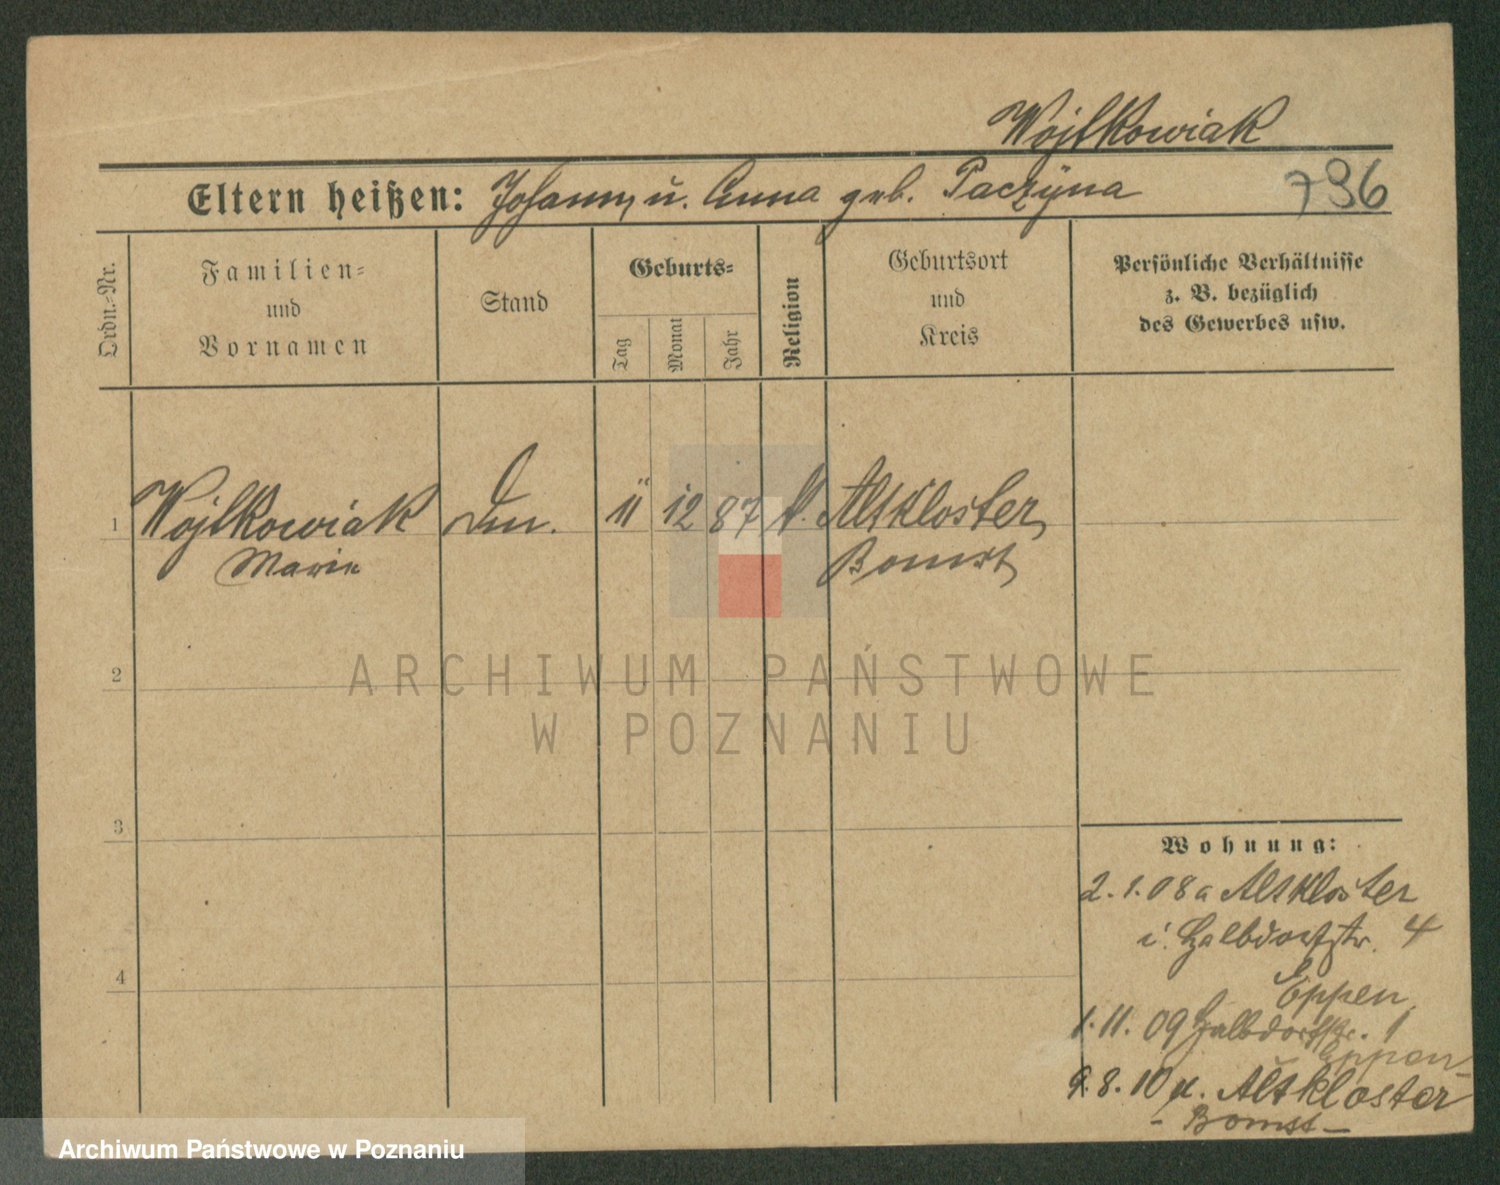 Wojtkowiak
Eltern heißen: Johann u. Anna geb. Paczyna
796
Ordn.-Nr.
Familien-
und
Vornamen
Stand
Geburts-
Tag
Monat
Jahr
Religion
Geburtsort
und
Kreis
Persönliche Verhältnisse
z. B. bezüglich
des Gewerbes usw.
1 Wojtkowiak 11 12 87 k. Altkloster
Marie Bomst
2
ARCHIWUM PAŃSTWOWE
W POZNANIU
3
Wohnung:
2.1.08 a Altkloster
i. Halbdorfstr. 4
4
Eppen
1.11.09 Halbdorfstr. 1
Eppen
9.8.10 n. Altkloster
- Bomst -
Archiwum Państwowe w Poznaniu